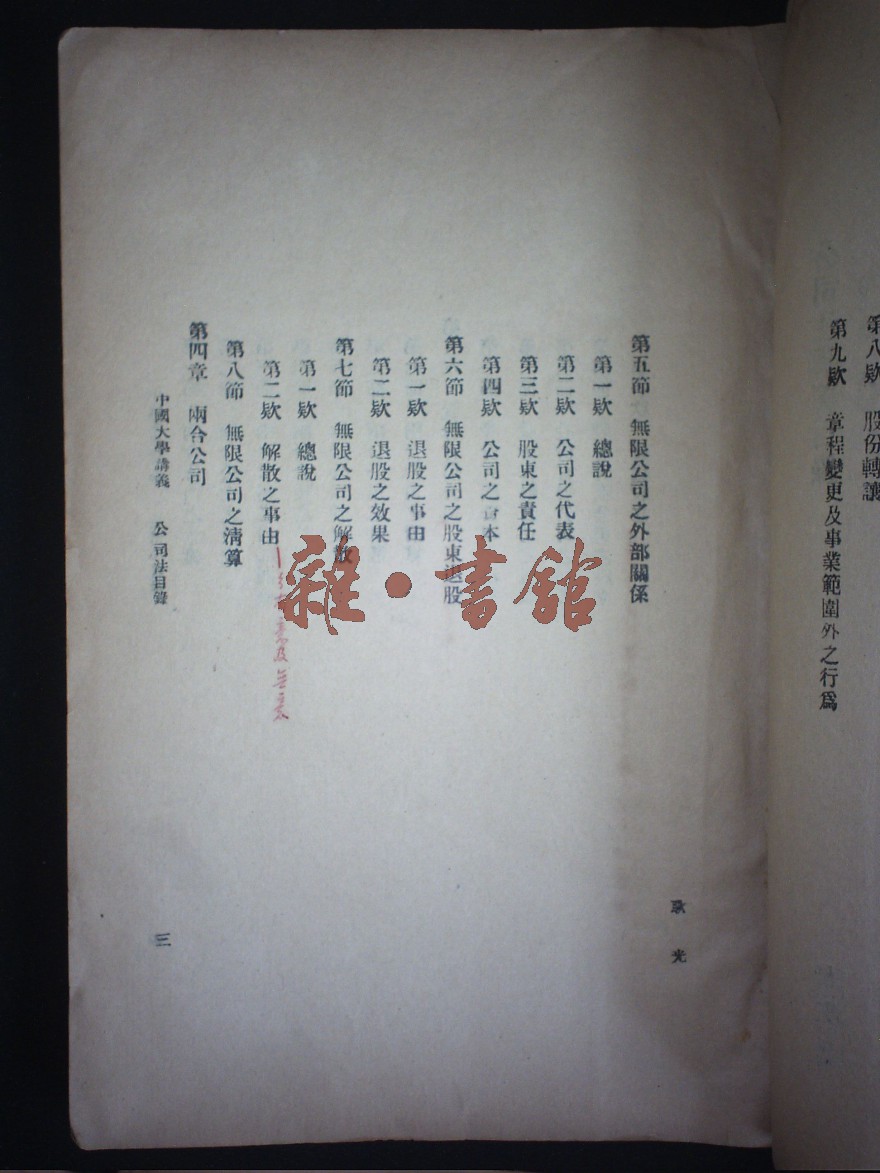 第八欵　股份轉讓
第九欵　章程變更及事業範圍外之行爲
第五節　無限公司之外部關係
第一欵　總說
第二欵　公司之代表
第三欵　股東之責任
第四欵　公司之資本
第六節　無限公司之股東退股
第一欵　退股之事由
第二欵　退股之效果
第七節　無限公司之解散
第一欵　總說
第二欵　解散之事由
第八節　無限公司之淸算
第四章　兩合公司
中國大學講義　公司法目錄
三
光
雜·書館